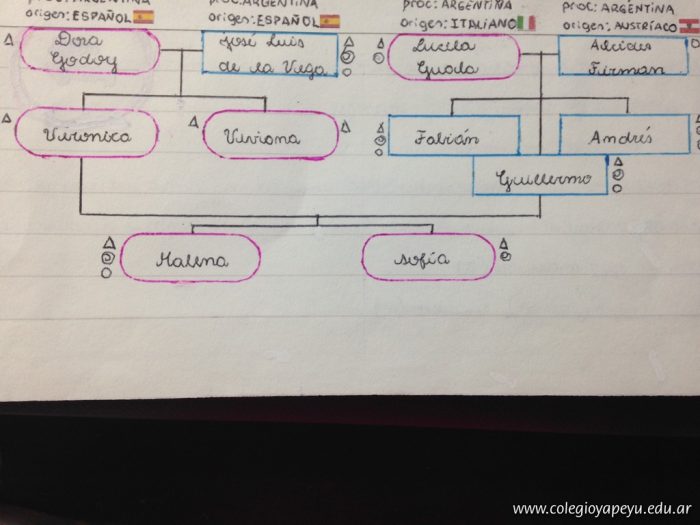 proc: ARGENTINA
origen: ESPAÑOL
proc: ARGENTINA
origen: ESPAÑOL
proc: ARGENTINA
origen: ITALIANO
proc: ARGENTINA
origen: AUSTRÍACO
Dora
Godoy
José Luis
de la Vega
Lucila
Guada
Alcides
Firman
Vironica
Viviana
Fabián
Andrés
Guillermo
Malena
sofía
www.colegioyapeyu.edu.ar